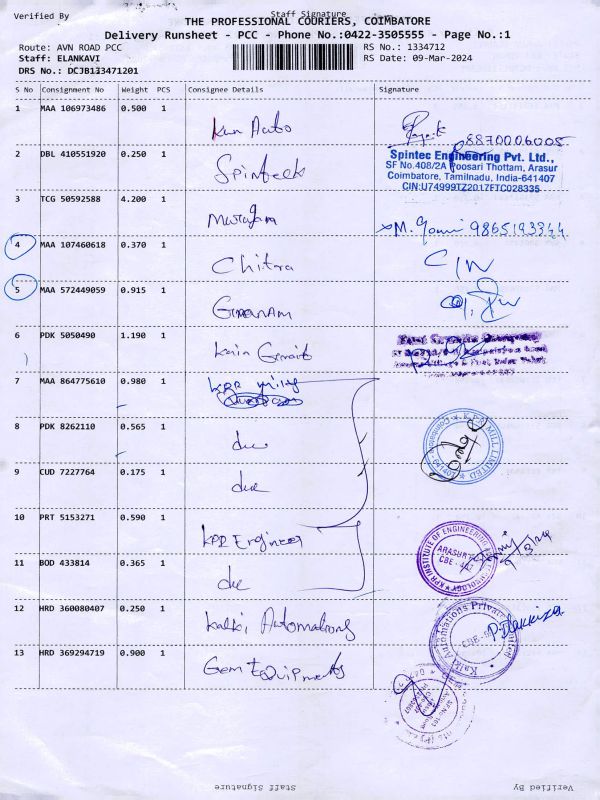 Verified By
Staff Signature
THE PROFESSIONAL COURIERS, COIMBATORE
Delivery Runsheet - PCC - Phone No.:0422-3505555 - Page No.:1
Route: AVN ROAD PCC
RS No.: 1334712
Staff: ELANKAVI
RS Date: 09-Mar-2024
DRS No.: DCJB133471201
S No Consignment No Weight PCS Consignee Details Signature
1 MAA 106973486 0.500 1
8870006005
2 DBL 410551920 0.250 1 Spintecks
Spintec Engineering Pvt. Ltd.,
SF No.408/2A Poosari Thottam, Arasur
Coimbatore, Tamilnadu, India-641407
CIN:U74999TZ2017FTC028335
3 TCG 50592588 4.200 1 Murugan M. Gowri 9865193344
4 MAA 107460618 0.370 1 Chitra
5 MAA 572449059 0.915 1
6 PDK 5050490 1.190 1
7 MAA 864775610 0.980 1 KPR mills
8 PDK 8262110 0.565 1 do
K.P.R. MILL LIMITED
641407
9 CUD 7227764 0.175 1 do
10 PRT 5153271 0.590 1 KPR Engineer
KPR INSTITUTE OF ENGINEERING
TECHNOLOGY
ARASUR
CBE - 407
11 BOD 433814 0.365 1 do
12 HRD 360080407 0.250 1 Kalki Automations
Kalki Automations Private Limited
13 HRD 369294719 0.900 1 Gem Equipments
Staff Signature
Verified By